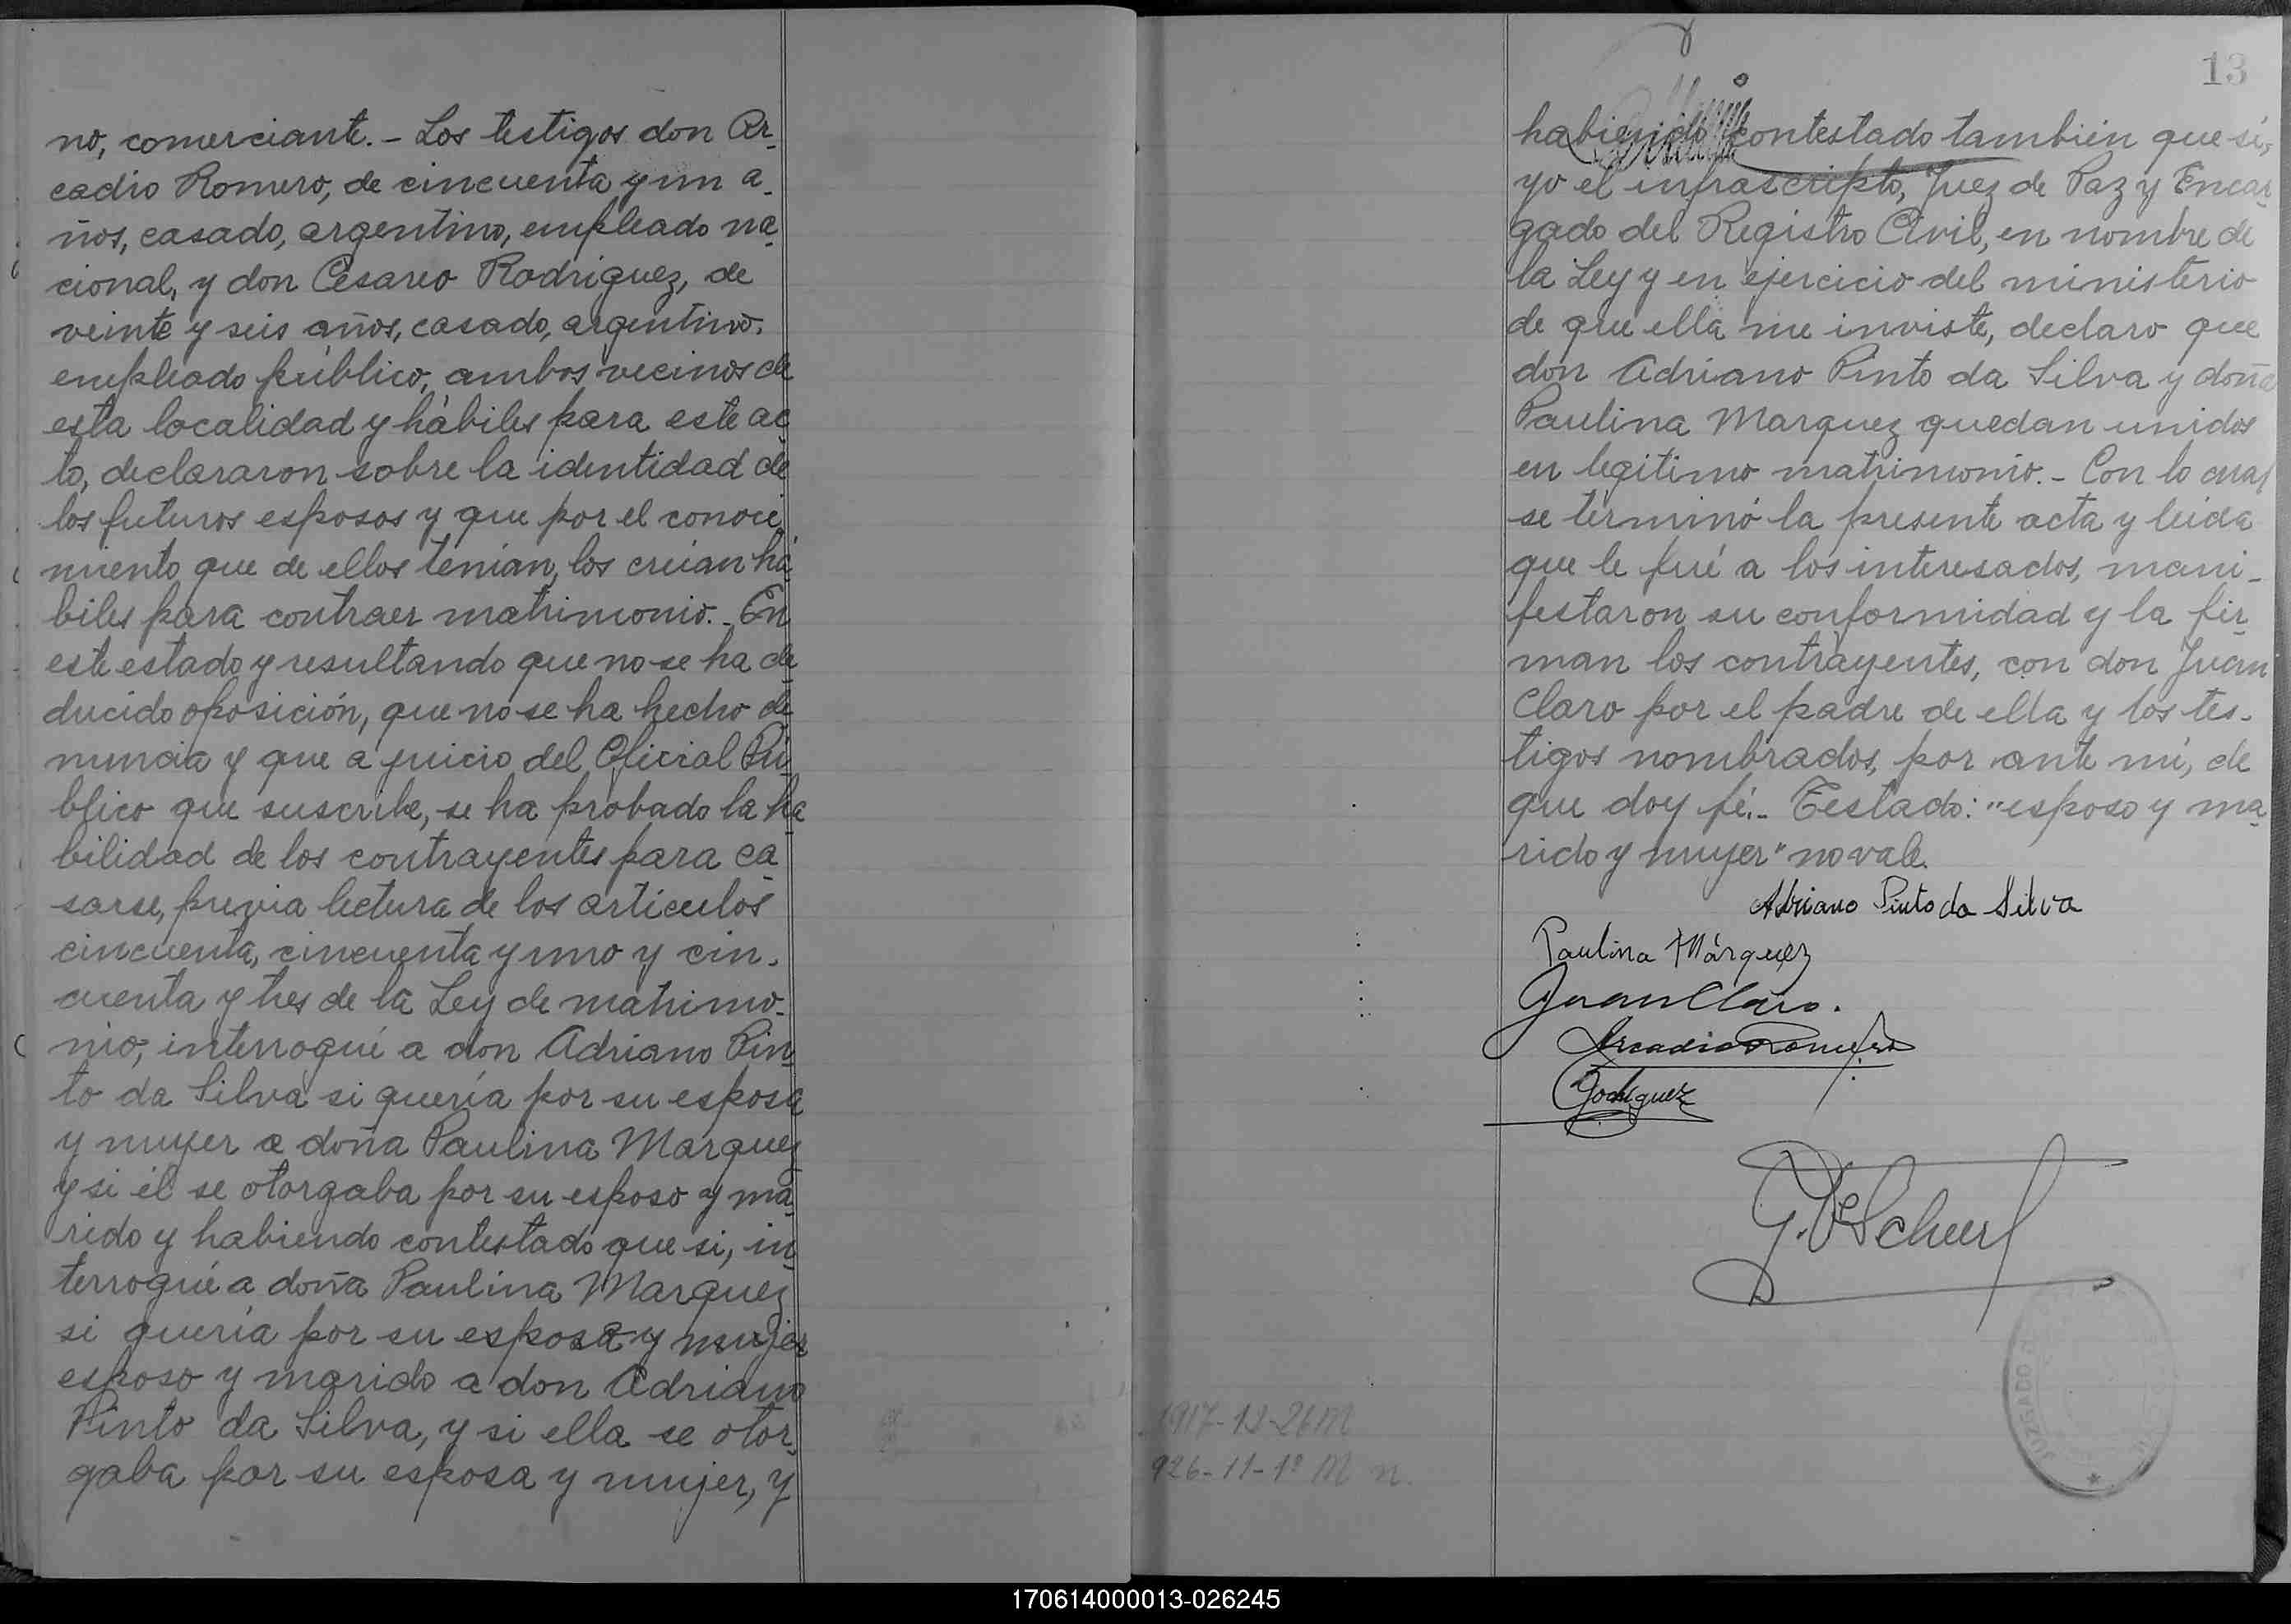 no, comerciante.- Los testigos don Ar-
cadio Romero, de cincuenta y un a-
ños, casado, argentino, empleado na-
cional, y don Cesareo Rodriguez, de
veinte y seis años, casado, argentino,
empleado público, ambos vecinos de
esta localidad y hábiles para este ac-
to, declararon sobre la identidad de
los futuros esposos y que por el conoci-
miento que de ellos tenían, los creían há-
biles para contraer matrimonio.- En
este estado y resultando que no se ha de-
ducido oposición, que no se ha hecho de-
nuncia y que a juicio del Oficial Pú-
blico que suscribe, se ha probado la ha-
bilidad de los contrayentes para ca-
sarse, previa lectura de los artículos
cincuenta, cincuenta y uno y cin-
cuenta y tres de la Ley de matrimo-
nio, interrogué a don Adriano Pin-
to da Silva si quería por su esposa
y mujer a doña Paulina Marquez
y si él se otorgaba por su esposo y ma-
rido y habiendo contestado que si, in-
terrogué a doña Paulina Marquez
si quería por su esposa y mujer
esposo y marido a don Adriano
Pinto da Silva, y si ella se otor-
gaba por su esposa y mujer, y
13
habiendo contestado también que sí,
yo el infrascripto, Juez de Paz y Encar-
gado del Registro Civil, en nombre de
la Ley y en ejercicio del ministerio
de que ella me inviste, declaro que
don Adriano Pinto da Silva y doña
Paulina Marquez quedan unidos
en legitimo matrimonio.- Con lo cual
se terminó la presente acta y leida
que le fué a los interesados, mani-
festaron su conformidad y la fir-
man los contrayentes, con don Juan
Claro por el padre de ella y los tes-
tigos nombrados, por ante mí, de
que doy fé.- Testado: "esposo y ma-
rido y mujer" no vale.
Adriano Pinto da Silva
Paulina Márquez
Juan Claro.
Arcadio Romero
Rodriguez
1917-12-26 M
926-11-1º M n.
JUZGADO D
170614000013-026245